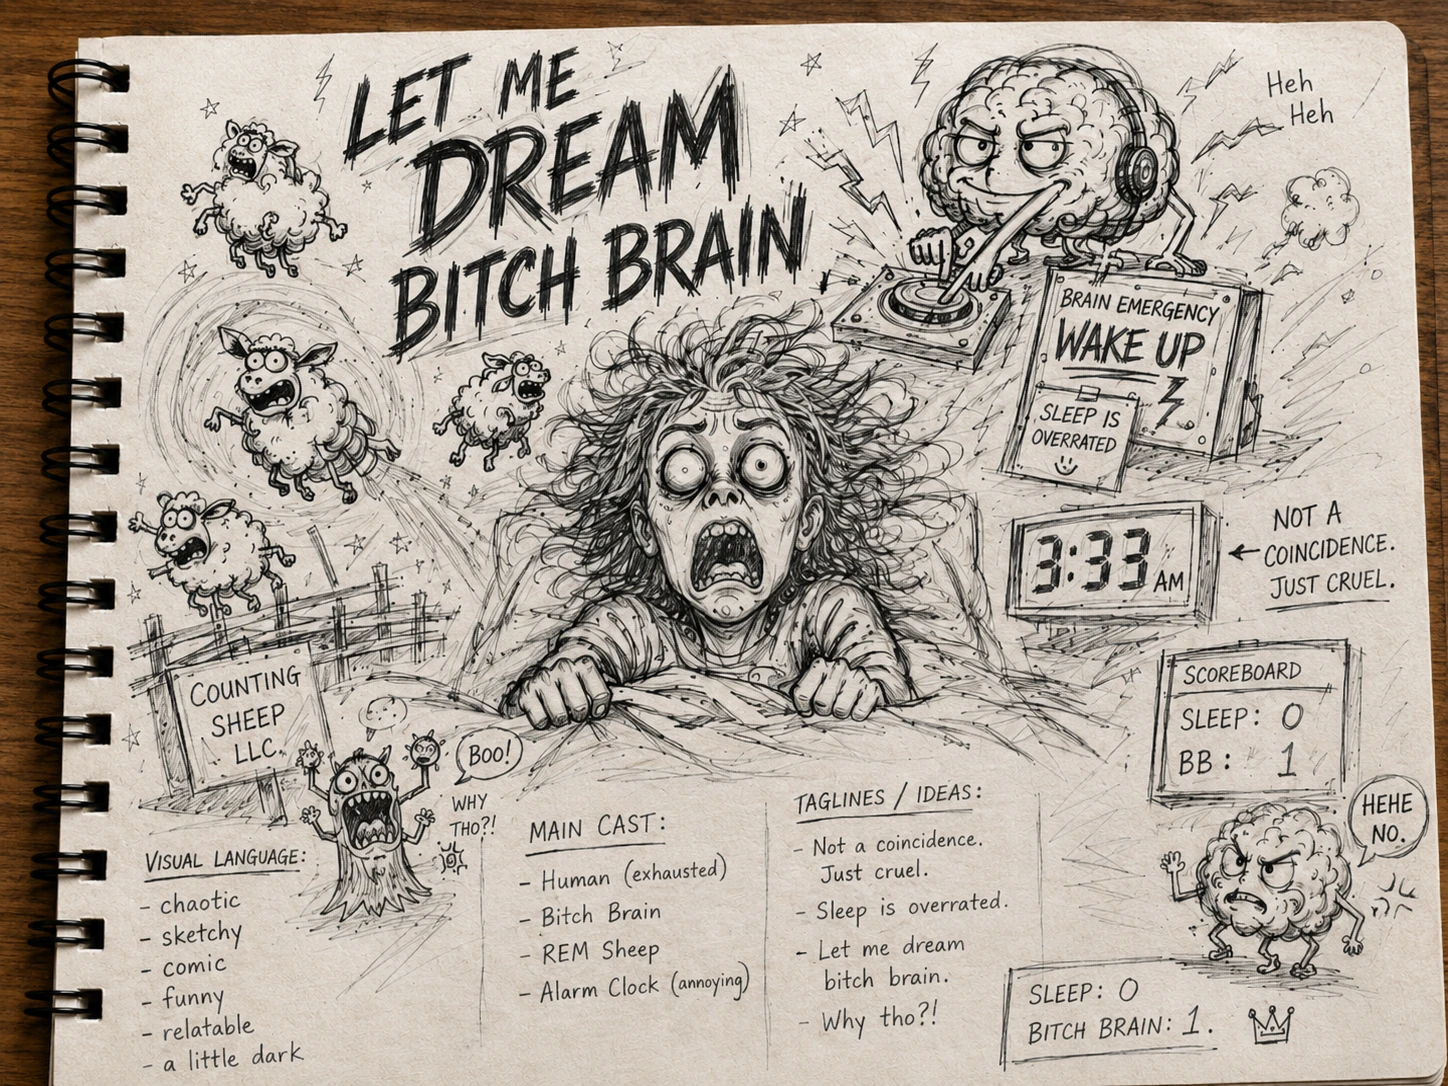 LET ME
DREAM
BITCH BRAIN
Heh
Heh
BRAIN EMERGENCY
WAKE UP
SLEEP IS
OVERRATED
3:33 AM
NOT A
COINCIDENCE.
JUST CRUEL.
COUNTING
SHEEP
LLC.
BOO!
WHY
THO?!
SCOREBOARD
SLEEP: 0
BB: 1
HEHE
NO.
VISUAL LANGUAGE:
- chaotic
- sketchy
- comic
- funny
- relatable
- a little dark
MAIN CAST:
- Human (exhausted)
- Bitch Brain
- REM Sheep
- Alarm Clock (annoying)
TAGLINES / IDEAS:
- Not a coincidence.
Just cruel.
- Sleep is overrated.
- Let me dream
bitch brain.
- Why tho?!
SLEEP: 0
BITCH BRAIN: 1.